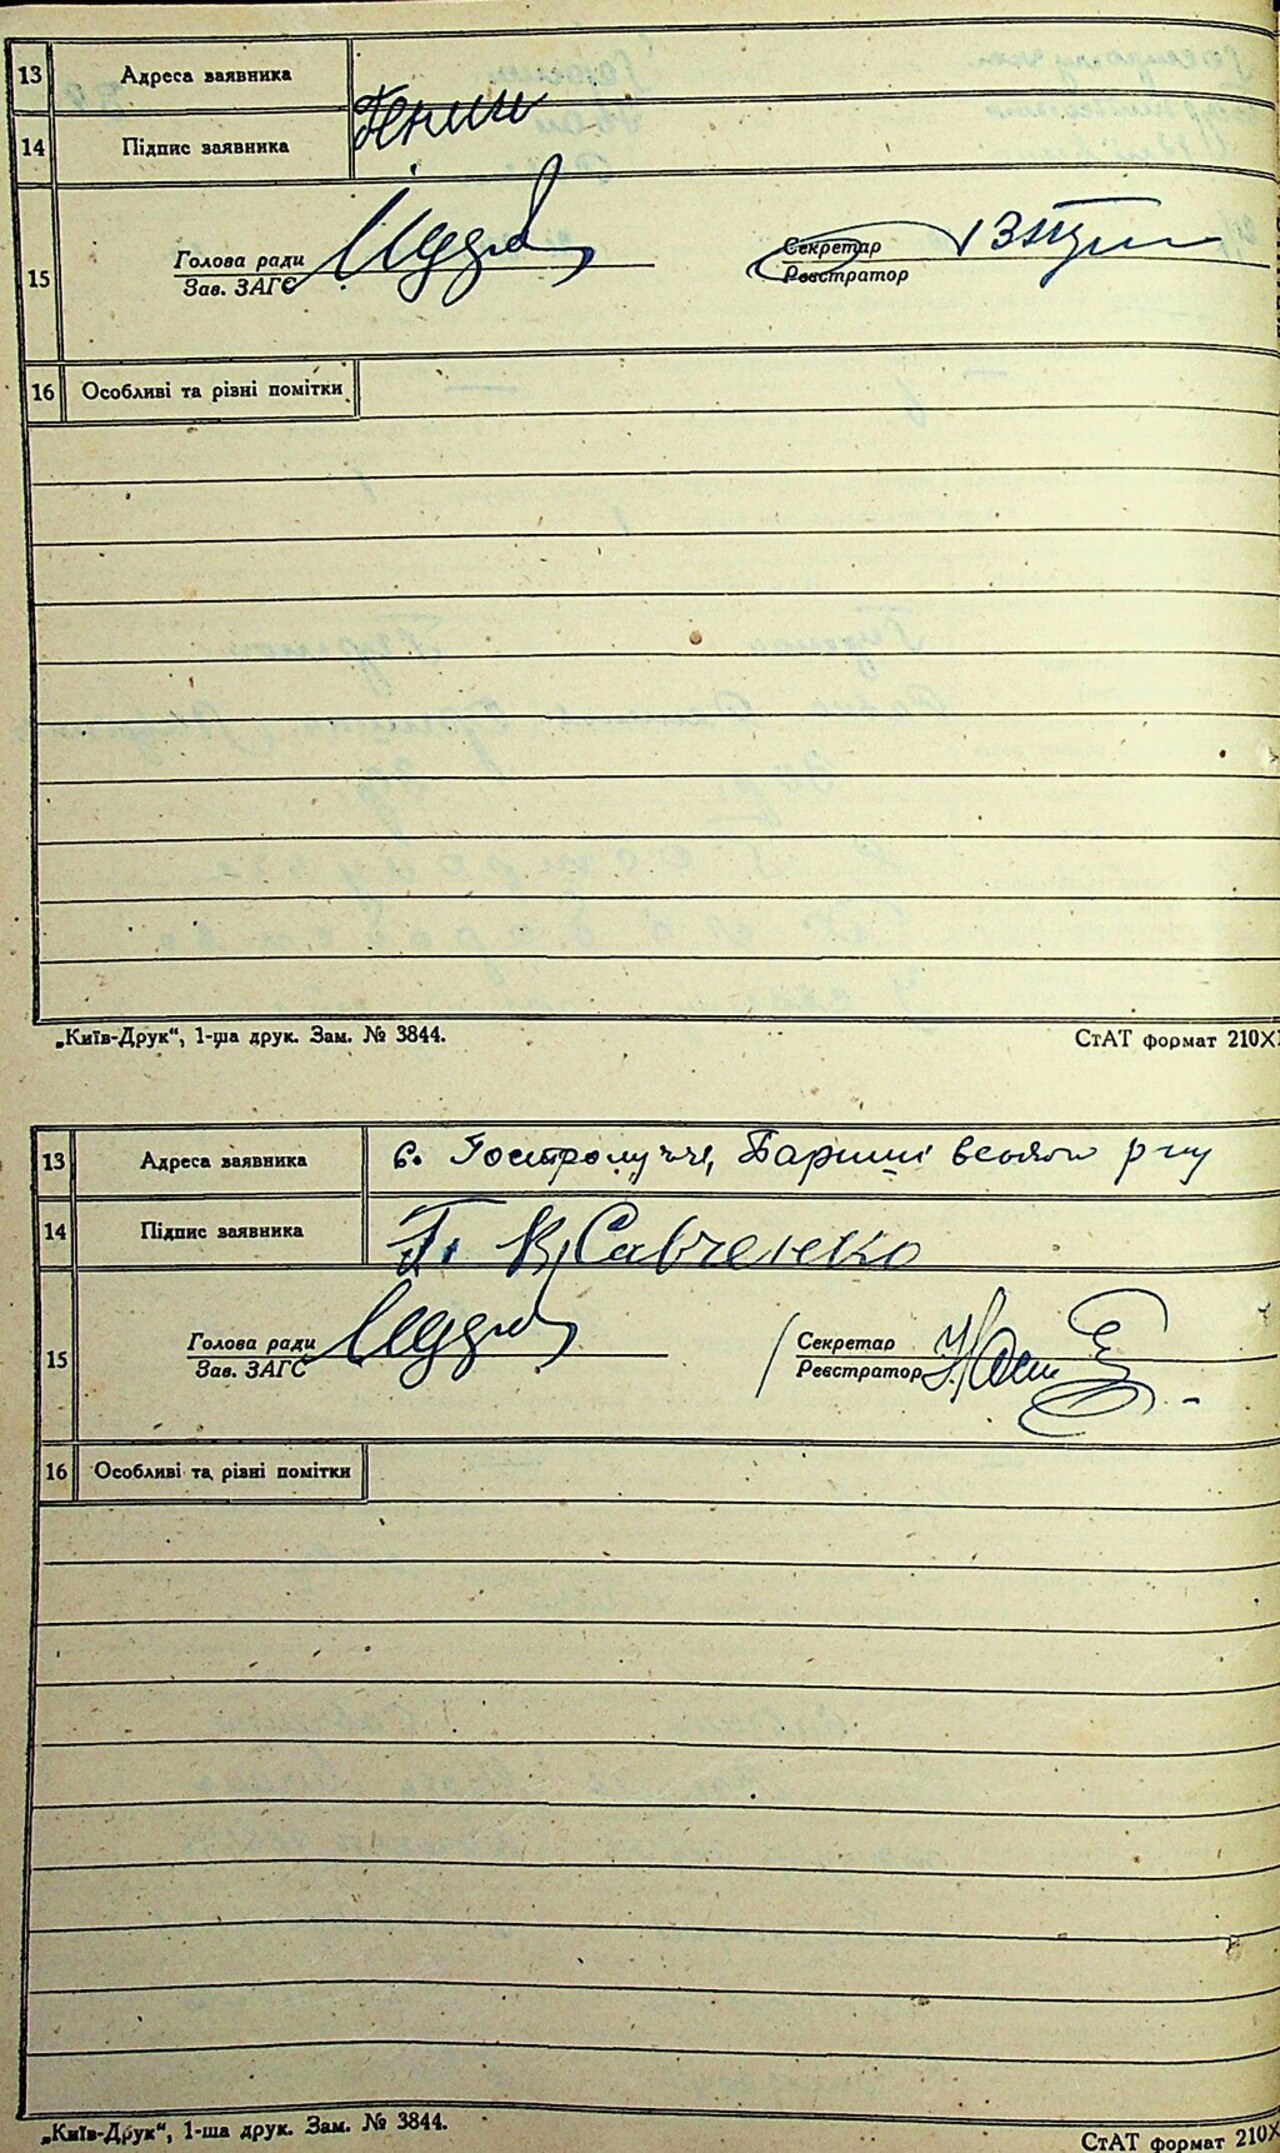 13 Адреса заявника
14 Підпис заявника
15 Голова ради Секретар
Зав. ЗАГС Реєстратор
16 Особливі та різні помітки
„Київ-Друк“, 1-ша друк. Зам. № 3844. СтАТ формат 210X
13 Адреса заявника с. Гостролуччя, Баришівського р-ну
14 Підпис заявника Г. В. Савченко
15 Голова ради Секретар
Зав. ЗАГС Реєстратор
16 Особливі та різні помітки
„Київ-Друк“, 1-ша друк. Зам. № 3844. СтАТ формат 210X